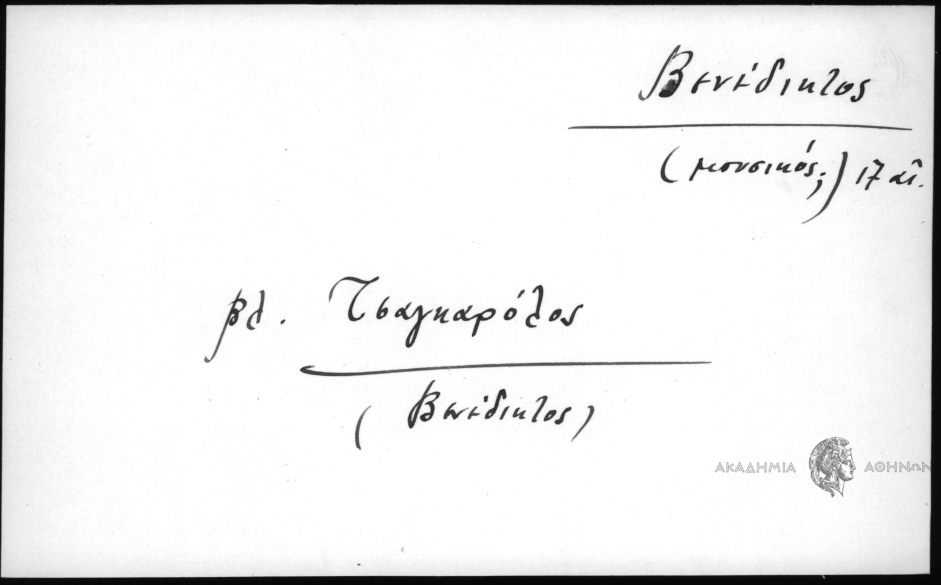 Βενέδικτος
(μουσικός;) 17 αἰ.
βλ. Τσαγκαρόλος
(Βενέδικτος)
ΑΚΑΔΗΜΙΑ ΑΘΗΝΩΝ